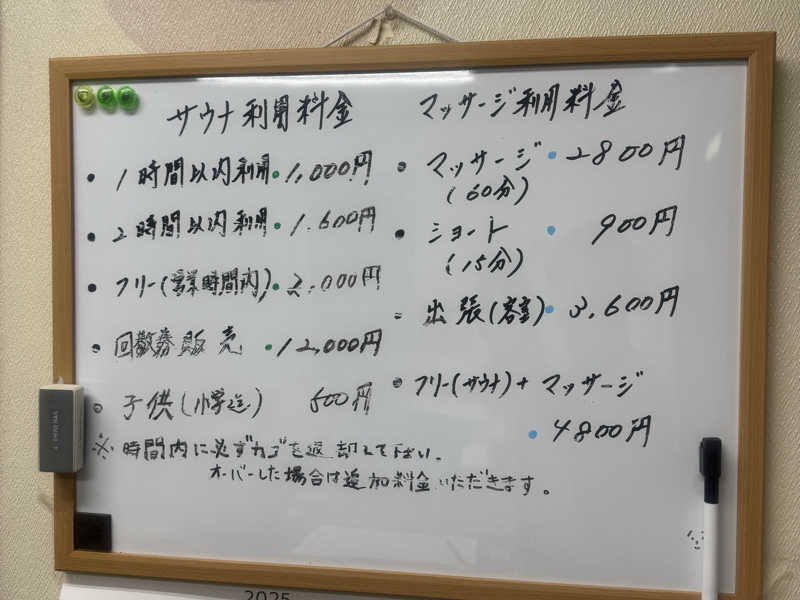 サウナ利用料金
・1時間以内利用・1,000円
・2時間以内利用・1.600円
・フリー(営業時間内)・2.000円
・回数券販売・12,000円
・子供(小学迄) 500円
※時間内に必ずカゴを返却して下さい.
オーバーした場合は追加料金いただきます。
マッサージ利用料金
・マッサージ・2800円
(60分)
・ショート・900円
(15分)
・出張(客室)・3.600円
・フリー(サウナ)+マッサージ
・4800円
2025